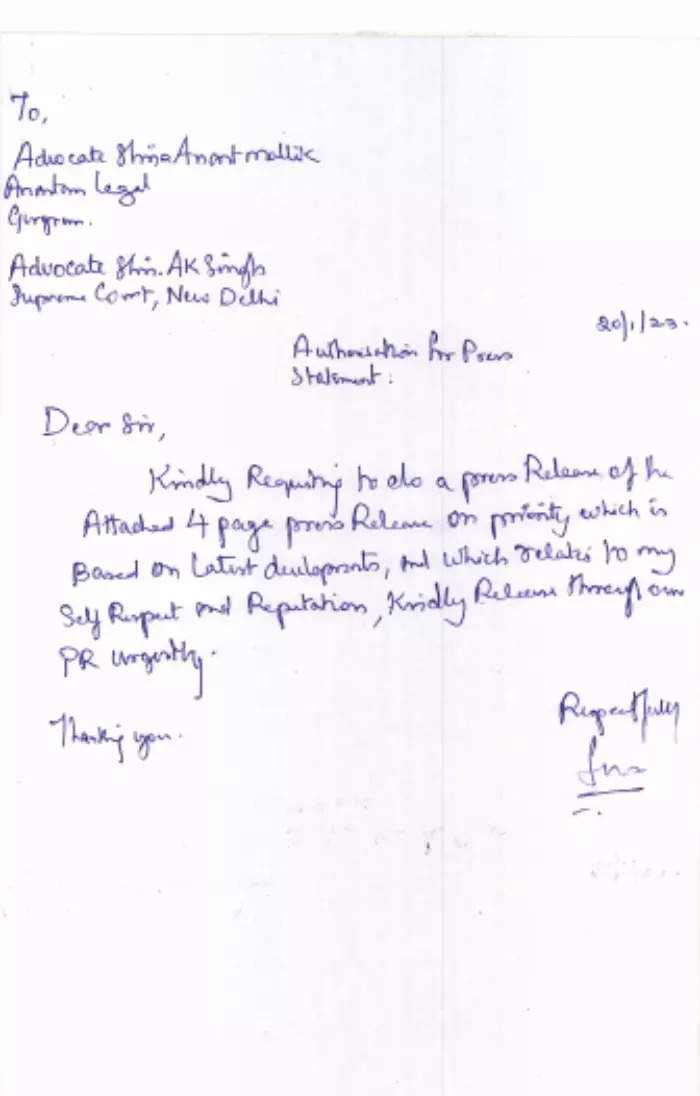 To,
Advocate Shri Anant mallik
Anantam Legal
Gurgram.
Advocate Shri. AK Singh
Supreme Court, New Delhi
20/1/23.
Authorisation for Press
Statement.
Dear Sir,
Kindly Requesting to do a press Release of the
Attached 4 page press Release on priority which is
Based on Latest developments, and which relates to my
Self Respect and Reputation, Kindly Release through our
PR urgently.
Thanking you.
Respectfully